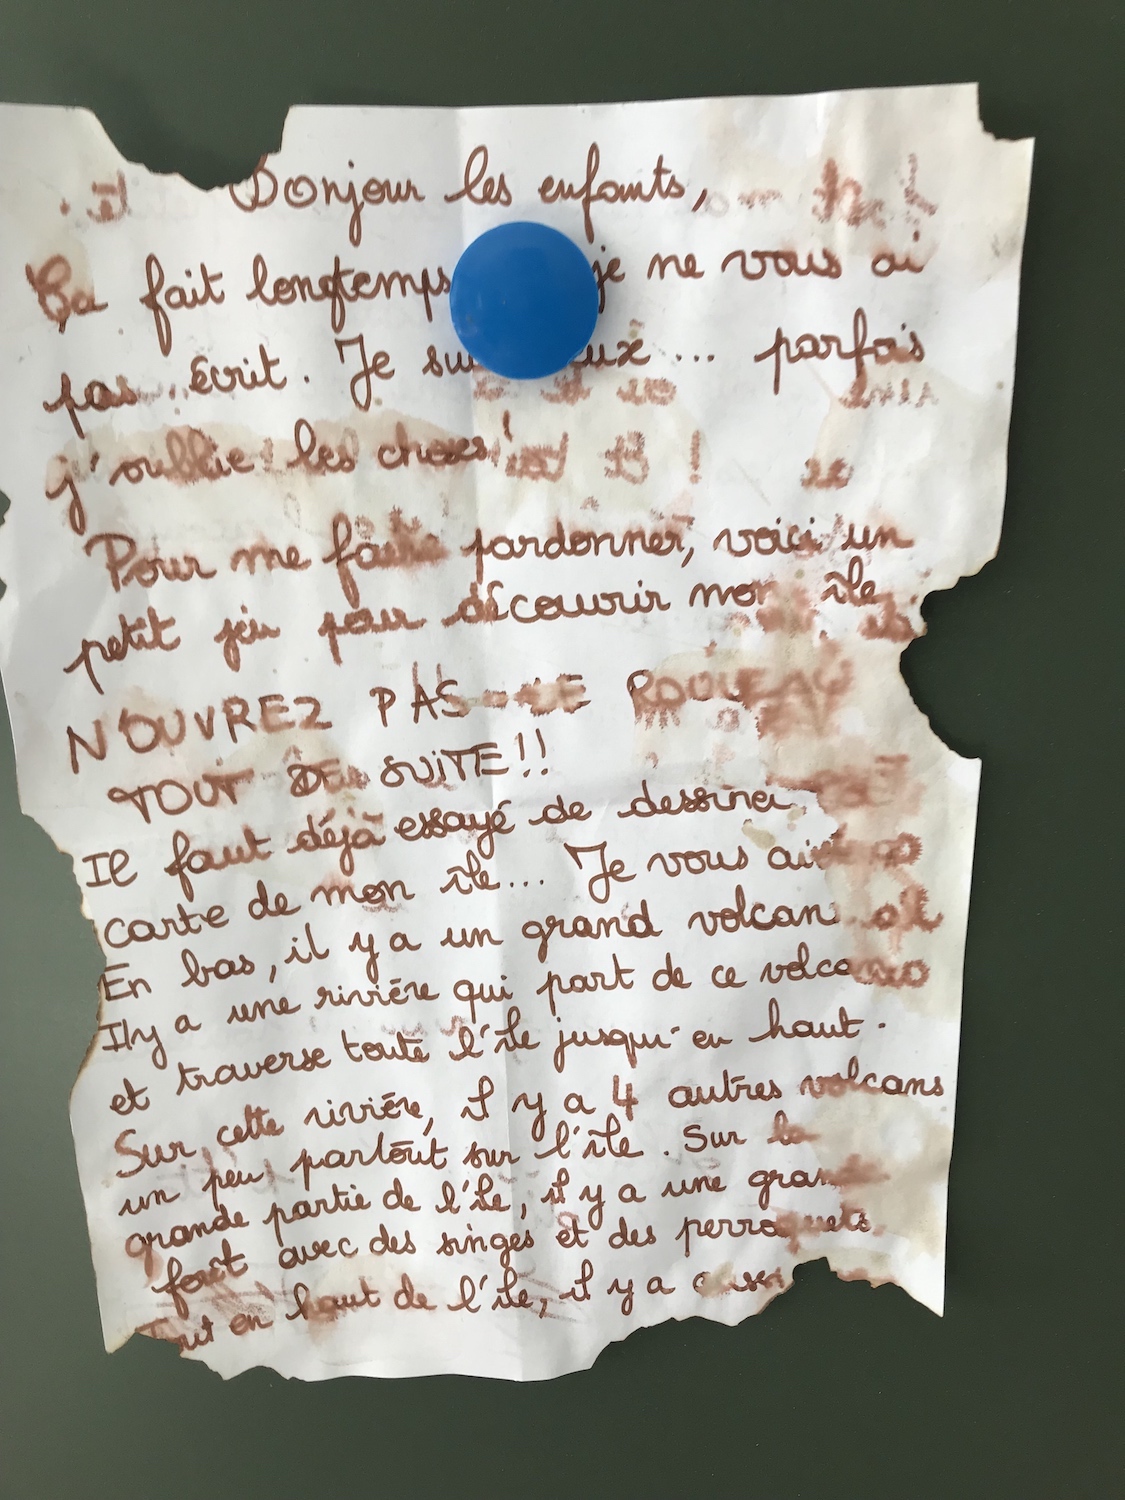 Bonjour les enfants,
Ça fait longtemps je ne vous ai
pas écrit. Je ... parfois
j'oublie les choses!
Pour me faire pardonner, voici un
petit jeu pour découvrir mon île.
N'OUVREZ PAS LE ROULEAU
TOUT DE SUITE!!
Il faut déjà essayé de dessiner
carte de mon île... Je vous
En bas, il y a un grand volcan.
Il y a une rivière qui part de ce volcan
et traverse toute l'île jusqu'en haut.
Sur cette rivière, il y a 4 autres volcans
un peu partout sur l'île. Sur la
grande partie de l'île, il y a une
forêt avec des singes et des perroquets.
Tout en haut de l'île, il y a aussi